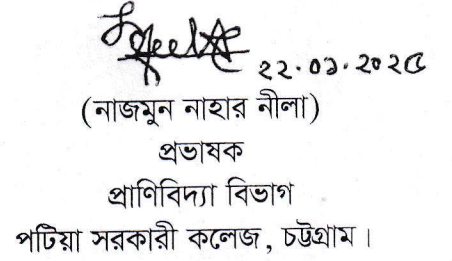 ২২.০১.২০২৫
(নাজমুন নাহার নীলা)
প্রভাষক
প্রাণিবিদ্যা বিভাগ
পটিয়া সরকারী কলেজ, চট্টগ্রাম।